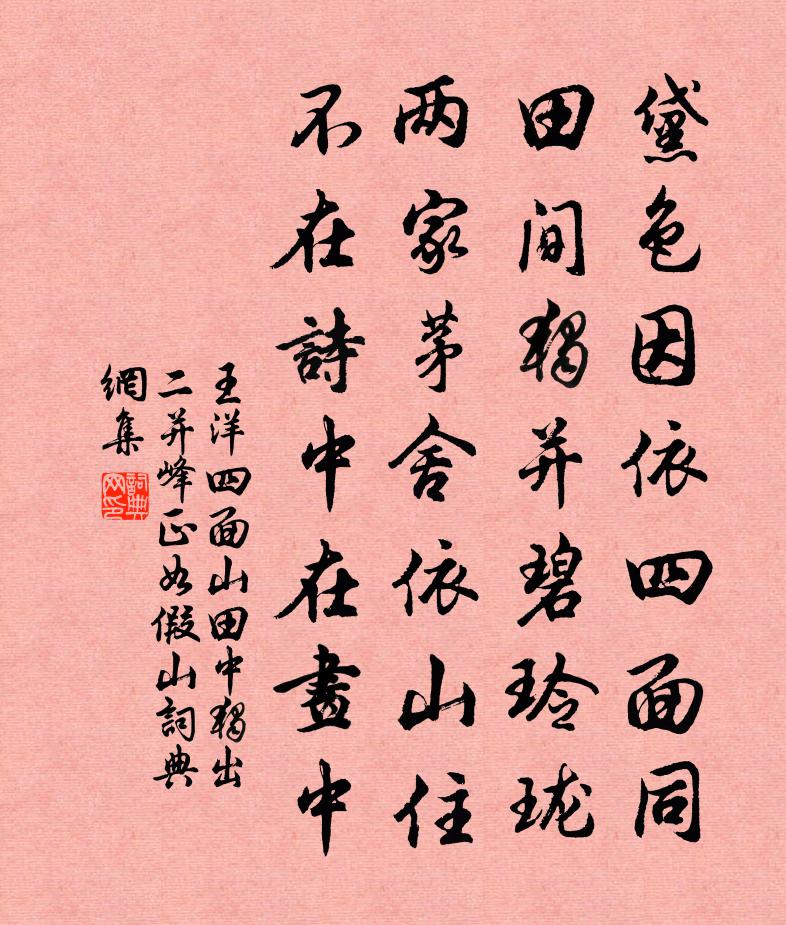 黛色因依四面同
田间獨并碧玲珑
两家茅舍依山住
不在詩中在畫中
王洋四面山田中獨出
二并峰正如假山詞典
網集
詞典网印